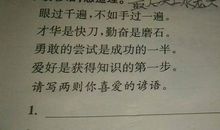 眼过千遍,不如手过一遍。
才华是快刀,勤奋是磨石。
勇敢的尝试是成功的一半。
爱好是获得知识的第一步。
请写两则你喜爱的谚语。
1.